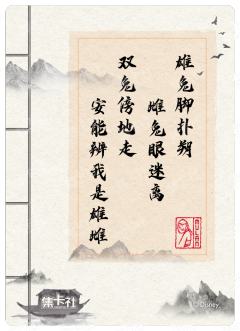 雄兔脚扑朔
雌兔眼迷离
双兔傍地走
安能辨我是雄雌
MULAN
集卡社
© Disney